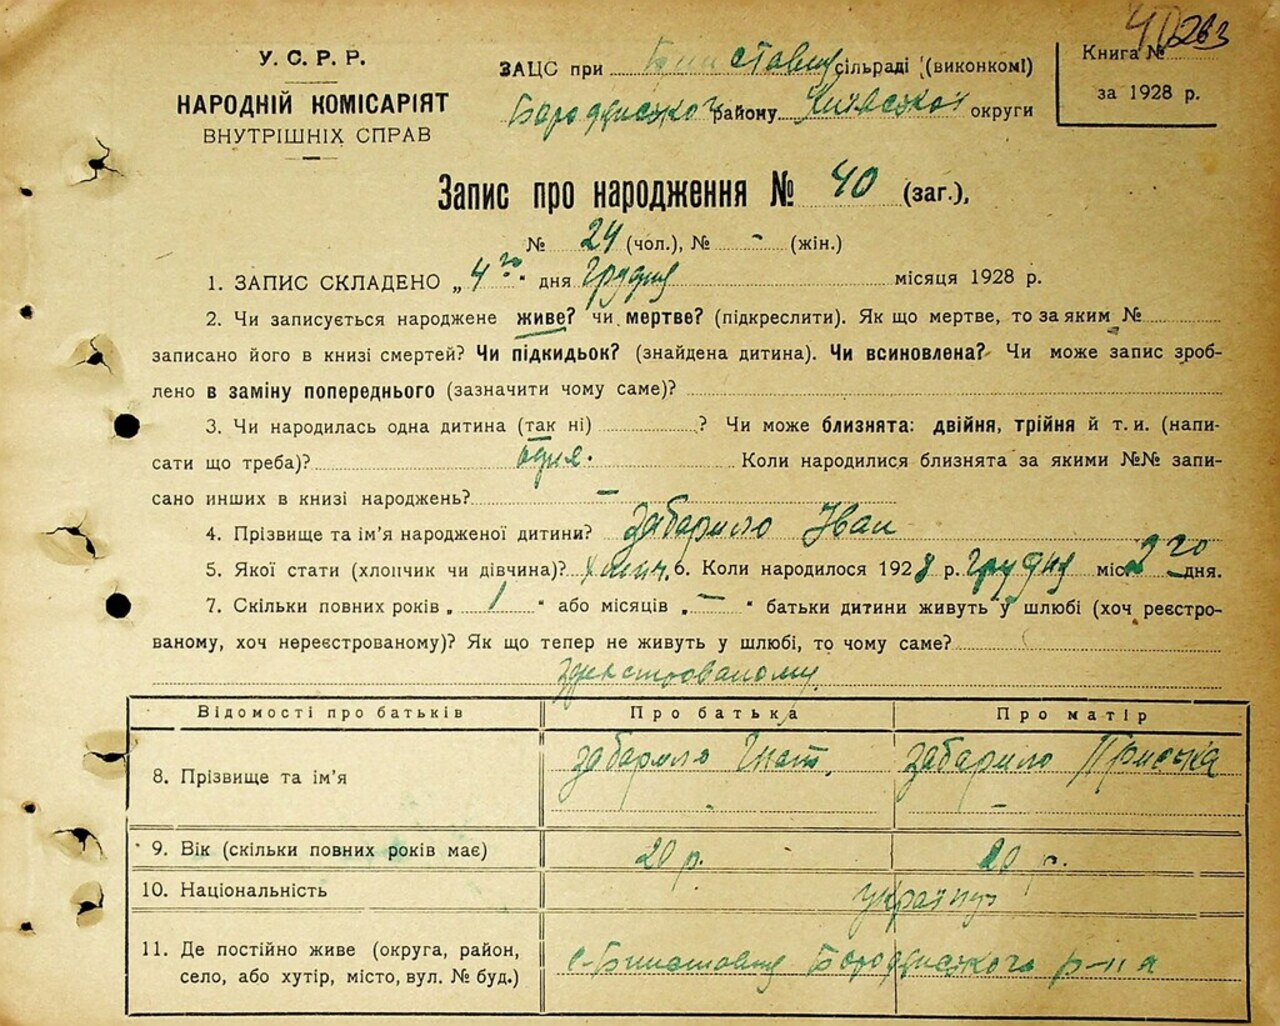 40 263
У. С. Р. Р.
НАРОДНІЙ КОМІСАРІЯТ
ВНУТРІШНІХ СПРАВ
ЗАЦС при сільраді (виконкомі)
району Київської округи
Книга №
за 1928 р.
Запис про народження № 40 (заг.),
№ 24 (чол.), № - (жін.)
1. ЗАПИС СКЛАДЕНО „4го“ дня грудня місяця 1928 р.
2. Чи записується народжене живе? чи мертве? (підкреслити). Як що мертве, то за яким №
записано його в книзі смертей? Чи підкидьок? (знайдена дитина). Чи всиновлена? Чи може запис зроб-
лено в заміну попереднього (зазначити чому саме)?
3. Чи народилась одна дитина (так ні) ? Чи може близнята: двійня, трійня й т. и. (напи-
сати що треба)? одня. Коли народилися близнята за якими №№ запи-
сано инших в книзі народжень? –
4. Прізвище та ім’я народженої дитини? Забарило Іван
5. Якої стати (хлопчик чи дівчина)? 6. Коли народилось 1928 р. грудня міс. 2го дня.
7. Скільки повних років „ 1 “ або місяців „ – “ батьки дитини живуть у шлюбі (хоч реєстро-
ваному, хоч нереєстрованому)? Як що тепер не живуть у шлюбі, то чому саме?
Відомості про батьків Про батька Про матір
8. Прізвище та ім’я Забарило Гнат. Забарило Приська
9. Вік (скільки повних років має) 20 р. 20 р.
10. Національність
11. Де постійно живе (округа, район,
село, або хутір, місто, вул. № буд.) р-на